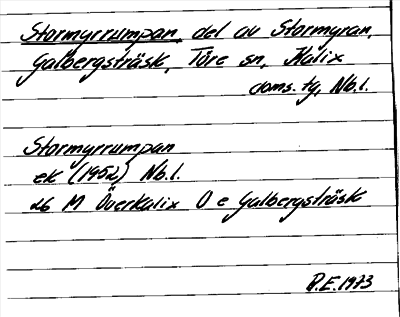 Stormyrrumpan, del av Stormyran,
Galbergsträsk, Töre sn, Kalix
doms. tg, Nb.l.
Stormyrrumpan
ek (1952) Nb.l.
26 M Överkalix O e Galbergsträsk
P.E. 1973